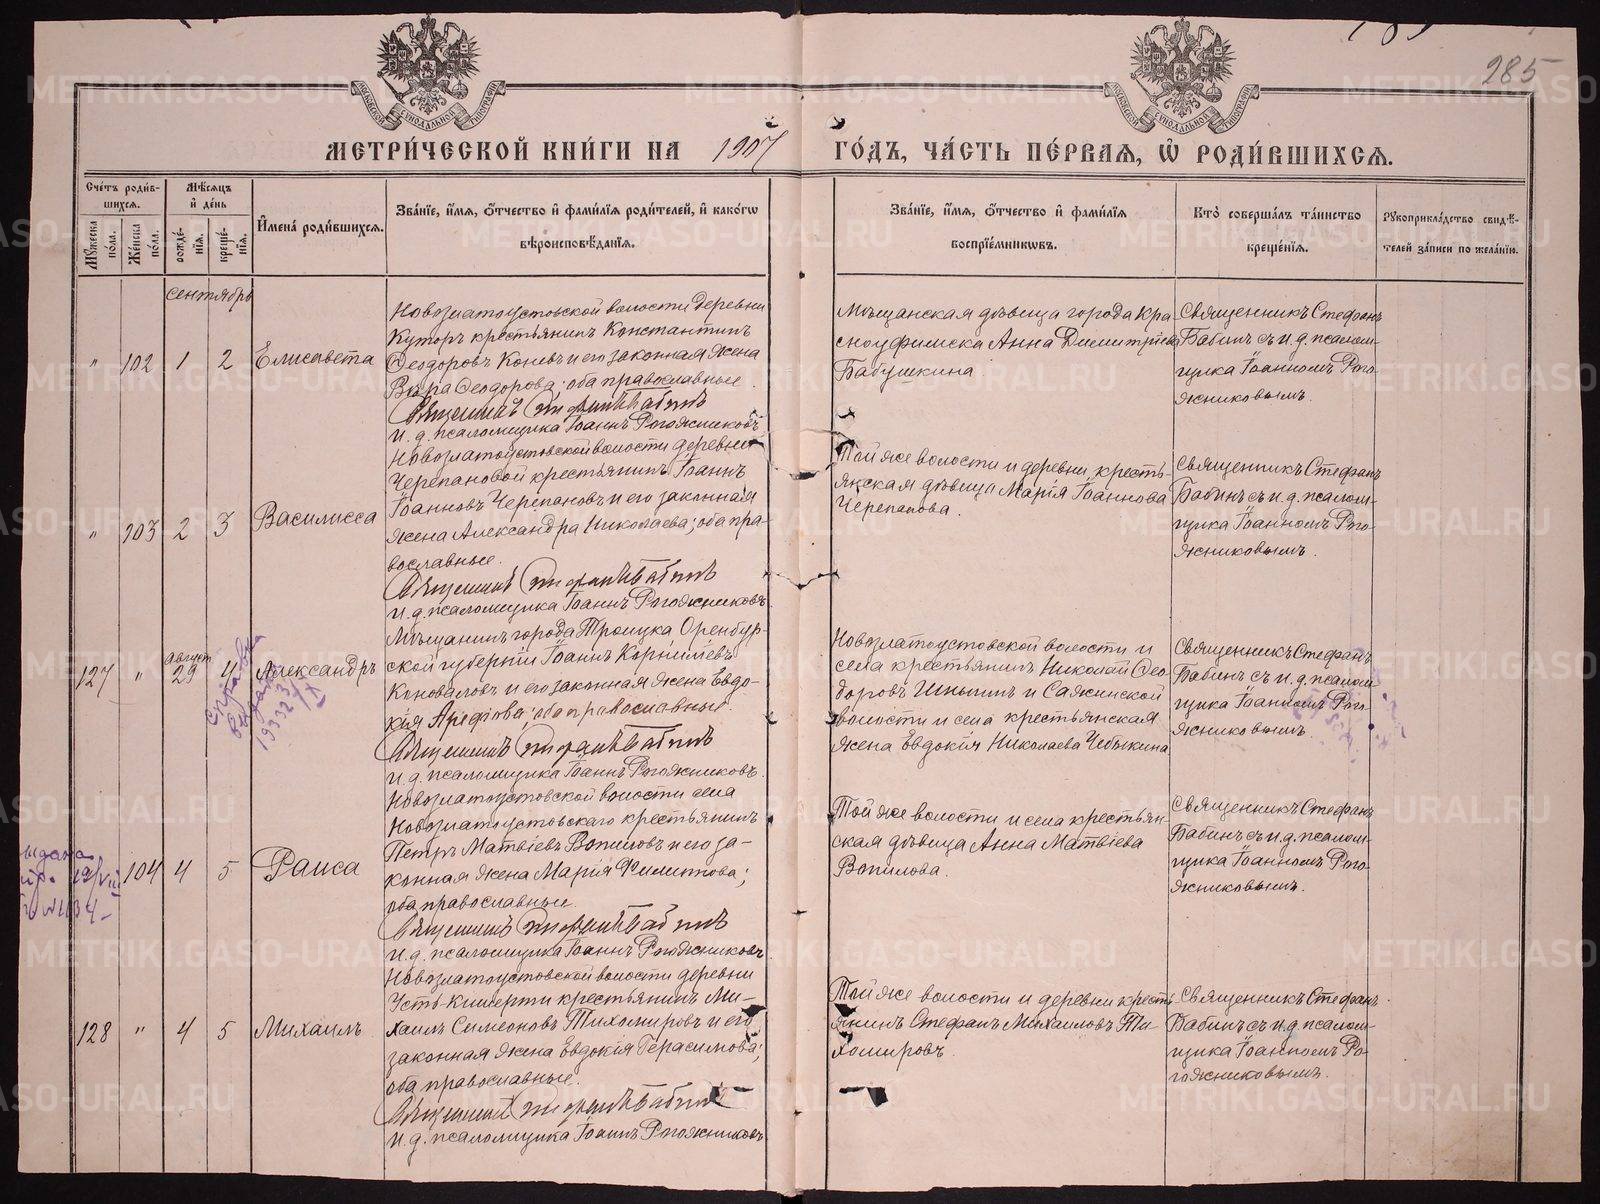 285
МОСКОВСКОЙ СѴНОДАЛЬНОЙ ТИПОГРАФІИ
МОСКОВСКОЙ СѴНОДАЛЬНОЙ ТИПОГРАФІИ
МЕТРИ́ЧЕСКОЙ КНИ́ГИ НА 1907 ГО́ДЪ, ЧА́СТЬ ПЕ́РВАЯ, Ѡ РОДИ́ВШИХСЯ.
Сче́тъ роди́в-
шихся.
Мꙋжеска по́ла.
Же́нска по́ла.
Мѣ́сяцъ
и҆ де́нь
рожде́-
нія.
креще́-
нія.
И҆мена̀ роди́вшихся.
Зва́нїе, и҆́мя, ѻ҆́тчество и҆ фами́лїя роди́телей, и҆ како́гѡ
вѣроисповѣ́данїя.
Зва́нїе, и҆́мя, ѻ҆́тчество и҆ фами́лїя
воспрїе́мникѡвъ.
Кто̀ соверша́лъ та́инство
креще́нїя.
Рꙋкоприкла́дство свидѣ́-
телей за́писи по жела́нїю.
сентябрь
" 102 1 2 Елисавета
Новозлатоустовской волости деревни
Куторъ крестьянинъ Константинъ
Ѳеодоровъ Коневъ и его законная жена
Вѣра Ѳеодорова; оба православные.
Священникъ Стефанъ Бабинъ
и. д. псаломщика Іоаннъ Рогожниковъ
Мѣщанская дѣвица города Кра
сноуфимска Анна Димитріева
Бабушкина
Священникъ Стефанъ
Бабинъ съ и. д. псалом-
щика Іоанномъ Рого-
жниковымъ.
" 103 2 3 Василисса
Новозлатоустовской волости деревни
Черепановой крестьянинъ Іоаннъ
Іоанновъ Черепановъ и его законная
жена Александра Николаева; оба пра-
вославные.
Священникъ Стефанъ Бабинъ
и. д. псаломщика Іоаннъ Рогожниковъ
Той же волости и деревни, кресть-
янская дѣвица Марія Іоаннова
Черепанова.
Священникъ Стефанъ
Бабинъ съ и. д. псалом-
щика Іоанномъ Рого-
жниковымъ.
127 " август 29 4 Александръ
справка
выдана
1933
Мѣщанинъ города Троицка Оренбур-
ской губерніи Іоаннъ Корниліевъ
Коноваловъ и его законная жена Евдо-
кія Арефьева; оба православные.
Священникъ Стефанъ Бабинъ
и. д. псаломщика Іоаннъ Рогожниковъ.
Новозлатоустовской волости и
села крестьянинъ Николай Ѳео-
доровъ Шишинъ и Сажинской
волости и села крестьянская
жена Евдокія Николаева Чебыкина
Священникъ Стефанъ
Бабинъ съ и. д. псалом-
щика Іоанномъ Рого-
жниковымъ.
104 4 5 Раиса
Новозлатоустовской волости села
Новозлатоустовскаго крестьянинъ
Петръ Матвіевъ Вопиловъ и его за-
конная жена Марія Филиппова;
оба православные.
Священникъ Стефанъ Бабинъ
и. д. псаломщика Іоаннъ Рогожниковъ
Той же волости и села крестьян-
ская дѣвица Анна Матвіева
Вопилова.
Священникъ Стефанъ
Бабинъ съ и. д. псалом-
щика Іоанномъ Рого-
жниковымъ.
128 " 4 5 Михаилъ
Новозлатоустовской волости деревни
Усть-Кишерти крестьянинъ Ми-
хаилъ Симеоновъ Тихомировъ и его
законная жена Евдокія Герасимова;
оба православные.
Священникъ Стефанъ Бабинъ
и. д. псаломщика Іоаннъ Рогожниковъ
Той же волости и деревни кресть
янинъ Стефанъ Михаиловъ Ти-
хомировъ.
Священникъ Стефанъ
Бабинъ съ и. д. псалом-
щика Іоанномъ Ро-
гожниковымъ.
METRIKI.GASO-URAL.RU